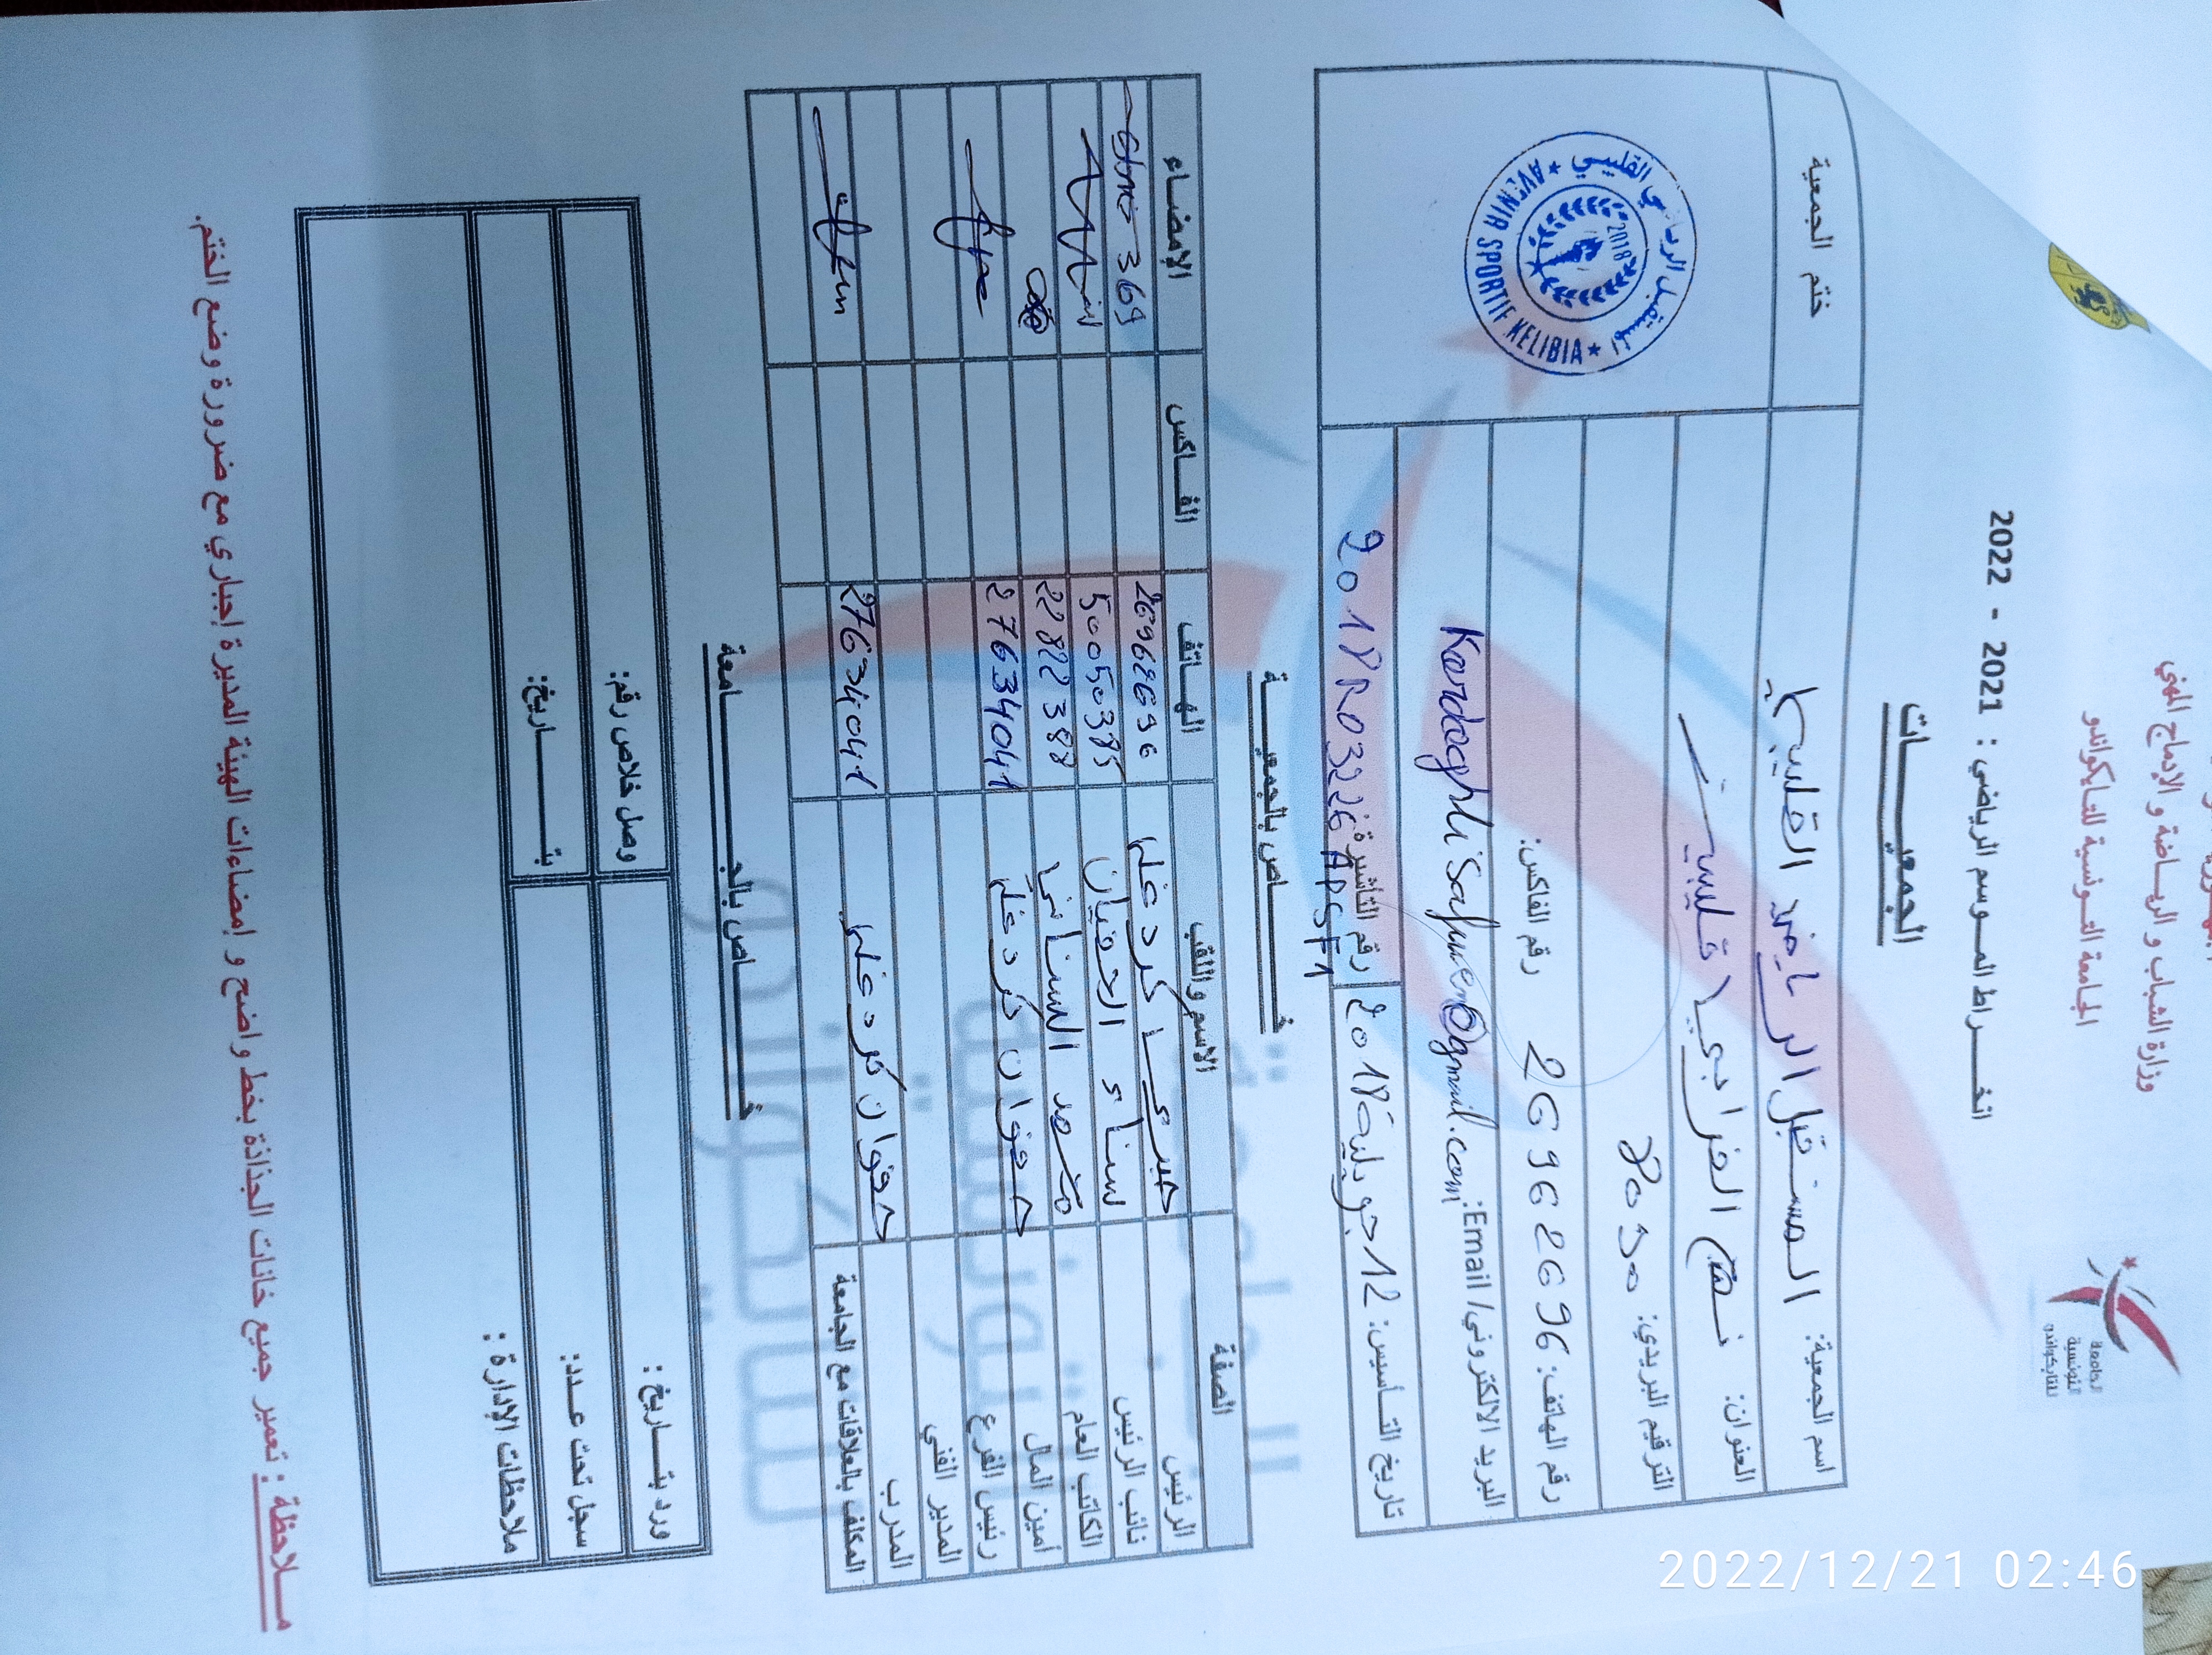 وزارة الشباب و الرياضة و الإدماج المهني
الجامعة التونسية للتايكواندو
الجامعة
التونسية
للتايكواندو
انخراط الموسم الرياضي : 2021 - 2022
الجمعيات
اسم الجمعية: المستقبل الرياضي القليبي
ختم الجمعية
العنوان: نهج الفرابي قليبية
الترقيم البريدي: 8090
رقم الهاتف: 26962696 رقم الفاكس:
البريد الالكتروني/ Email: Kardoghlisafwen@gmail.com
تاريخ التأسيس: 12 جويلية 2018 رقم التأشيرة 2018R03226APSF1
المستقبل الرياضي القليبي
2018
★ AVENIR SPORTIF KELIBIA ★
خاص بالجمعية
الصفة الاسم واللقب الهاتف الفاكس الإمضاء
الرئيس صبري كردغلي 26962696
نائب الرئيس سناء 50050385
الكاتب العام محمد السناني 22822388
أمين المال صفوان كردغلي 27634041
رئيس الفرع
المدير الفني
المدرب صفوان كردغلي 27634041
المكلف بالعلاقات مع الجامعة
خاص بالجامعة
ورد بتاريخ : وصل خلاص رقم:
سجل تحت عدد: بتاريخ:
ملاحظات الإدارة :
ملاحظة : تعمير جميع خانات الجذاذة بخط واضح و إمضاءات الهيئة المديرة إجباري مع ضرورة وضع الختم.
2022/12/21 02:46